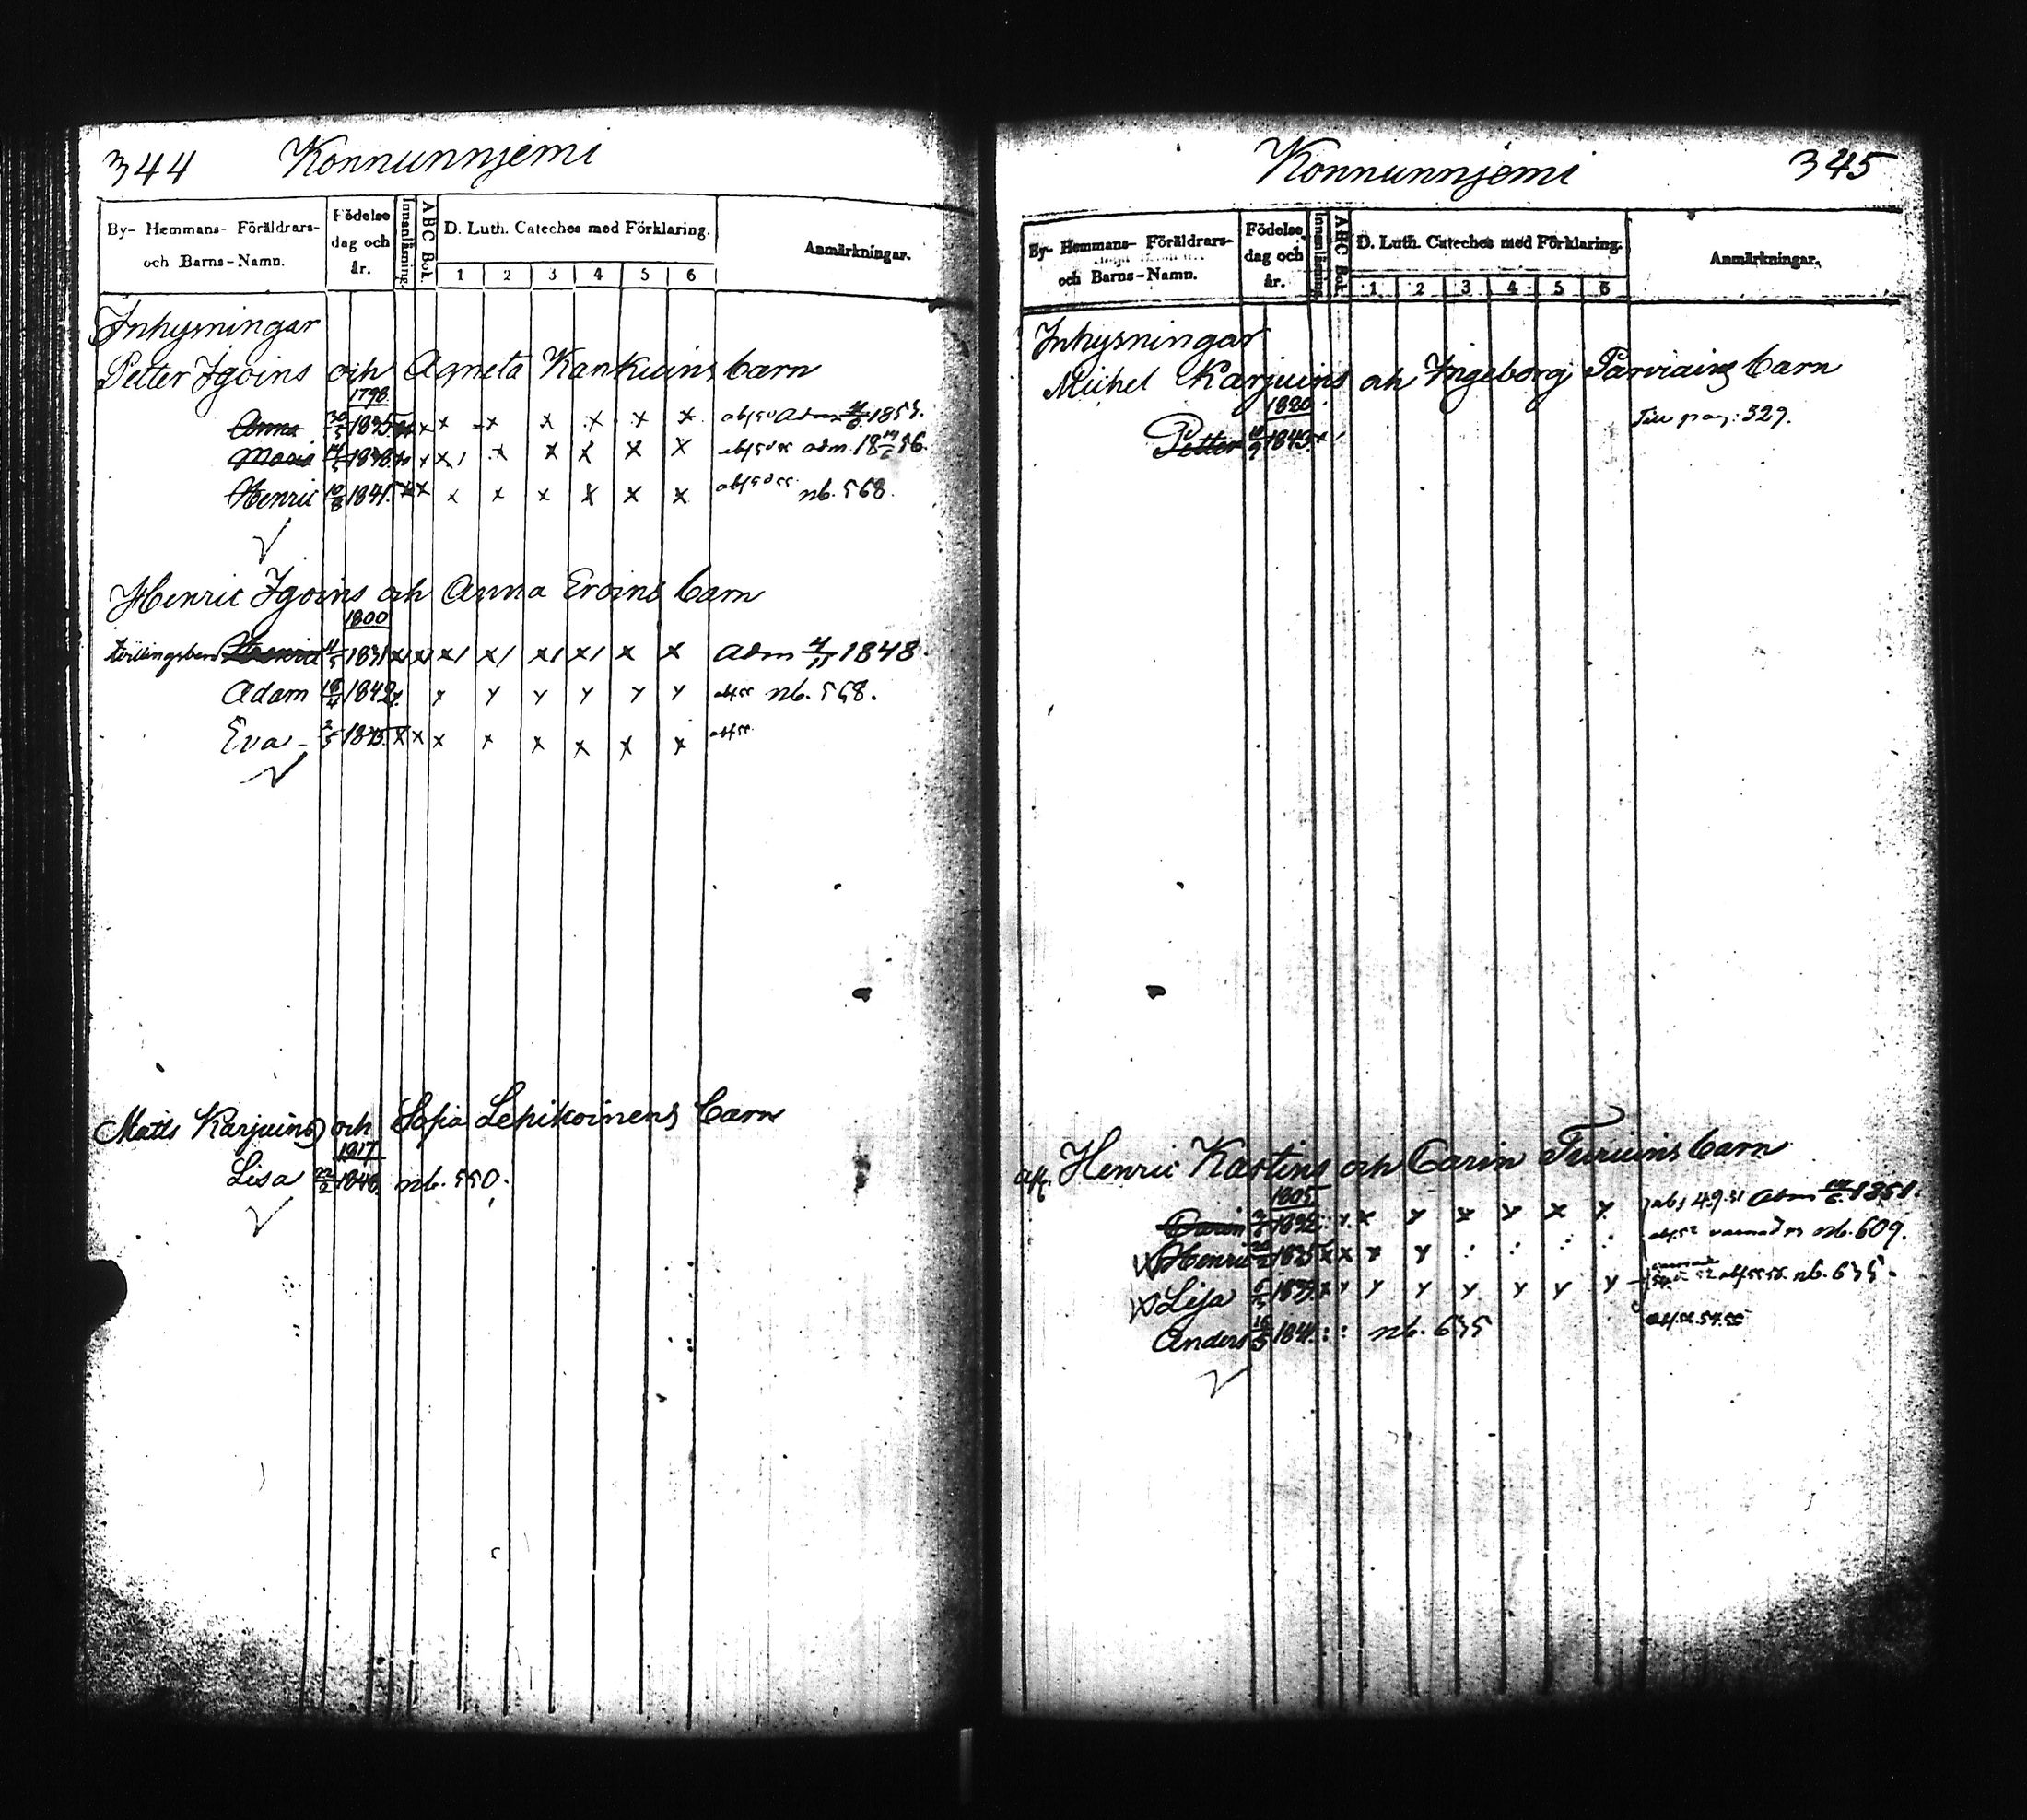 344 Konnunnjemi
By- Hemmans- Föräldrars- och Barns-Namn.
Födelse dag och år.
Innanläsning.
ABC Bok.
D. Luth. Cateches med Förklaring.
1 2 3 4 5 6
Anmärkningar.
Inhysningar
Petter Igoins och Agneta Kankuins barn
1798
Anna 30/5 1835 x x x x x x x x 1853.
Maria 1838 x x x x x x x x adm. 18 56.
Henric 10/8 1841 x x x x x x x x nb. 568.
Henric Igoins och Anna Eroins barn
1800
1831 x x x x x x x x adm 4/11 1848.
Adam 18/4 1842 x x y y y y y nb. 568.
Eva 2/5 1845 x x x x x x x x
Matts Karjuins och Sofia Lehikoinens barn
1817
Lisa 22/2 1848. nb. 550.
Konnunnjemi 345
By- Hemmans- Föräldrars- och Barns-Namn.
Födelse dag och år.
Innanläsning.
ABC Bok.
D. Luth. Cateches med Förklaring.
1 2 3 4 5 6
Anmärkningar.
Inhysningar
Michel Karjuins och Ingeborg Parviains barn
1820
Petter 1843 x Till pag: 329.
Henric Kastins och Carin Turuins barn
1805
Carin 1832 y x y x y x y 49.51 adm 1851.
Henric 1835 x x x y nb. 609.
Lisa 1839 x y y y y y y y nb. 635.
Anders 1841 nb. 635